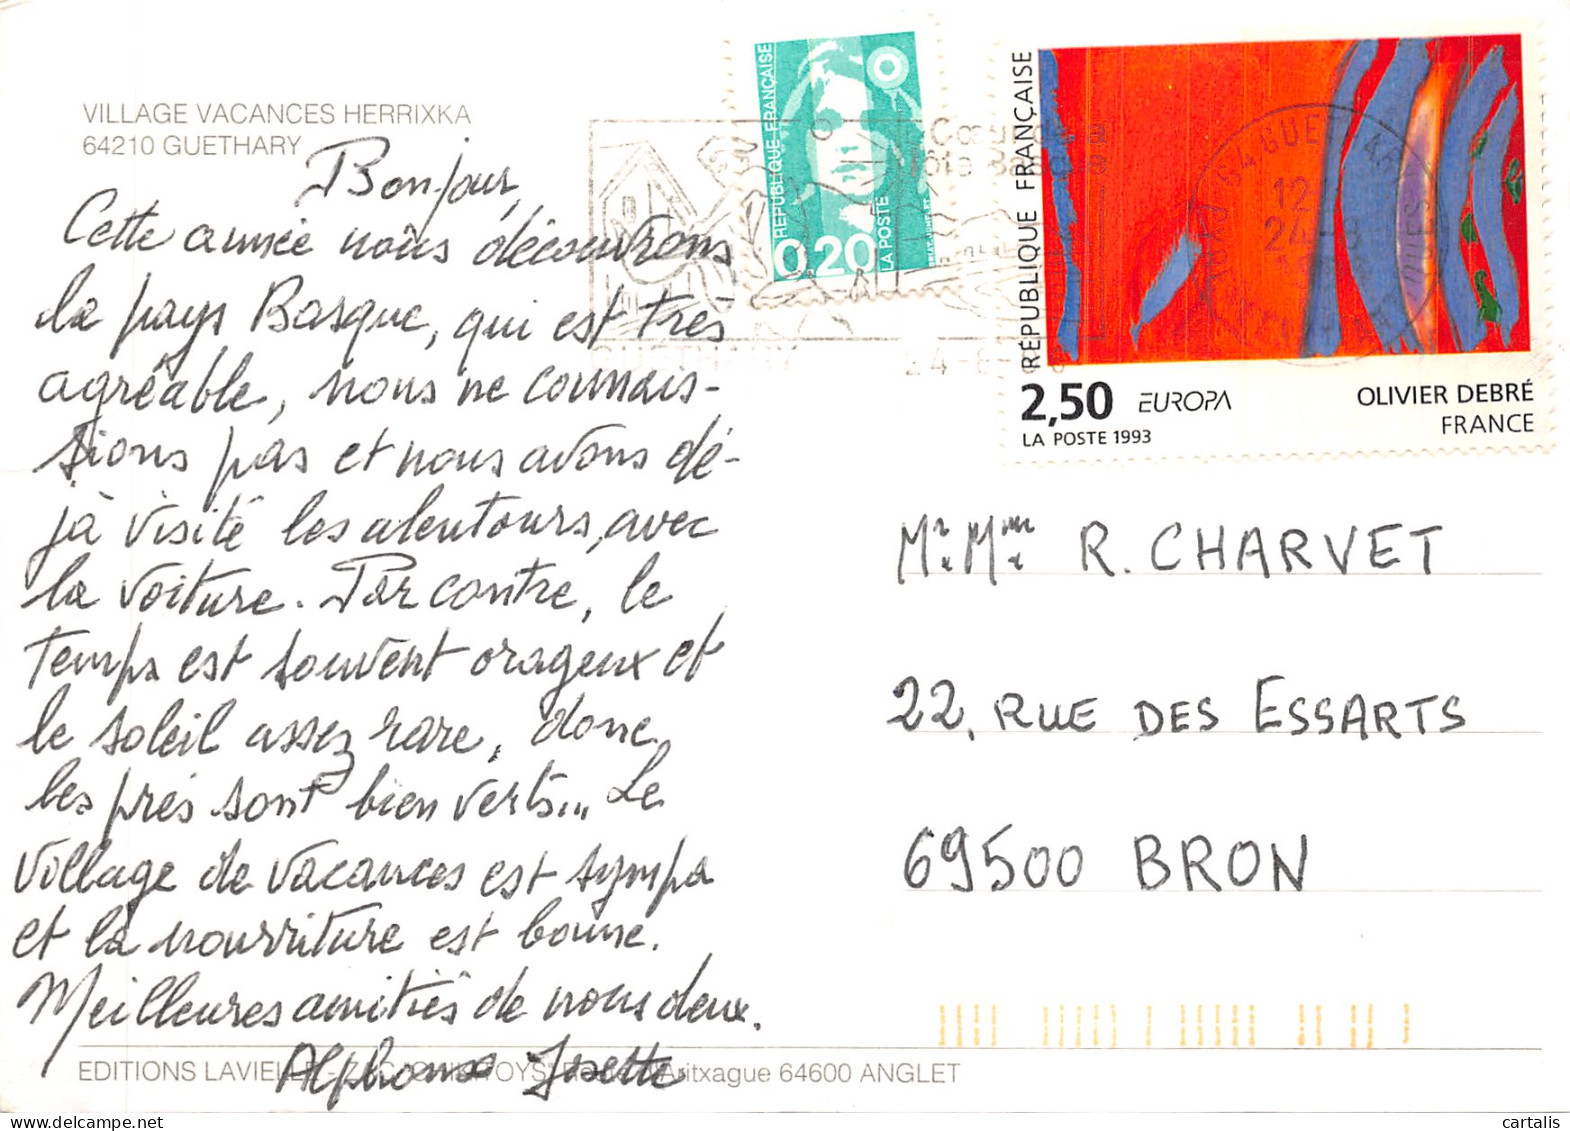 VILLAGE VACANCES HERRIXKA
64210 GUETHARY
Bonjour,
Cette année nous découvrons
le pays Basque, qui est très
agréable, nous ne connais-
sions pas et nous avons dé-
jà visité les alentours, avec
la voiture. Par contre, le
temps est souvent orageux et
le soleil assez rare, donc
les prés sont bien verts... Le
village de vacances est sympa
et la nourriture est bonne.
Meilleures amitiés de nous deux.
Alphonse Josette
EDITIONS LAVIELLE - Aritxague 64600 ANGLET
RÉPUBLIQUE FRANÇAISE
0,20
LA POSTE
Cœur de la
Côte Basque
GUETHARY
24-8-
64 GUETHARY
12
24-8
RÉPUBLIQUE FRANÇAISE
2,50 EUROPA
LA POSTE 1993
OLIVIER DEBRÉ
FRANCE
Mr. Mme. R. CHARVET
22, RUE DES ESSARTS
69500 BRON
cartalis